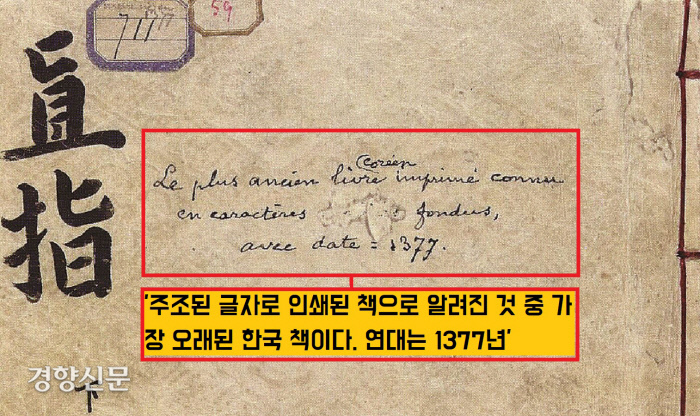 直指
下
7177
59
coréen
Le plus ancien livre imprimé connu
en caractères fondus,
avec date = 1377.
'주조된 글자로 인쇄된 책으로 알려진 것 중 가
장 오래된 한국 책이다. 연대는 1377년'
경향신문